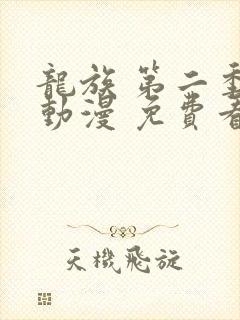 龍族 第二季
動漫 免費看
天機飛旋